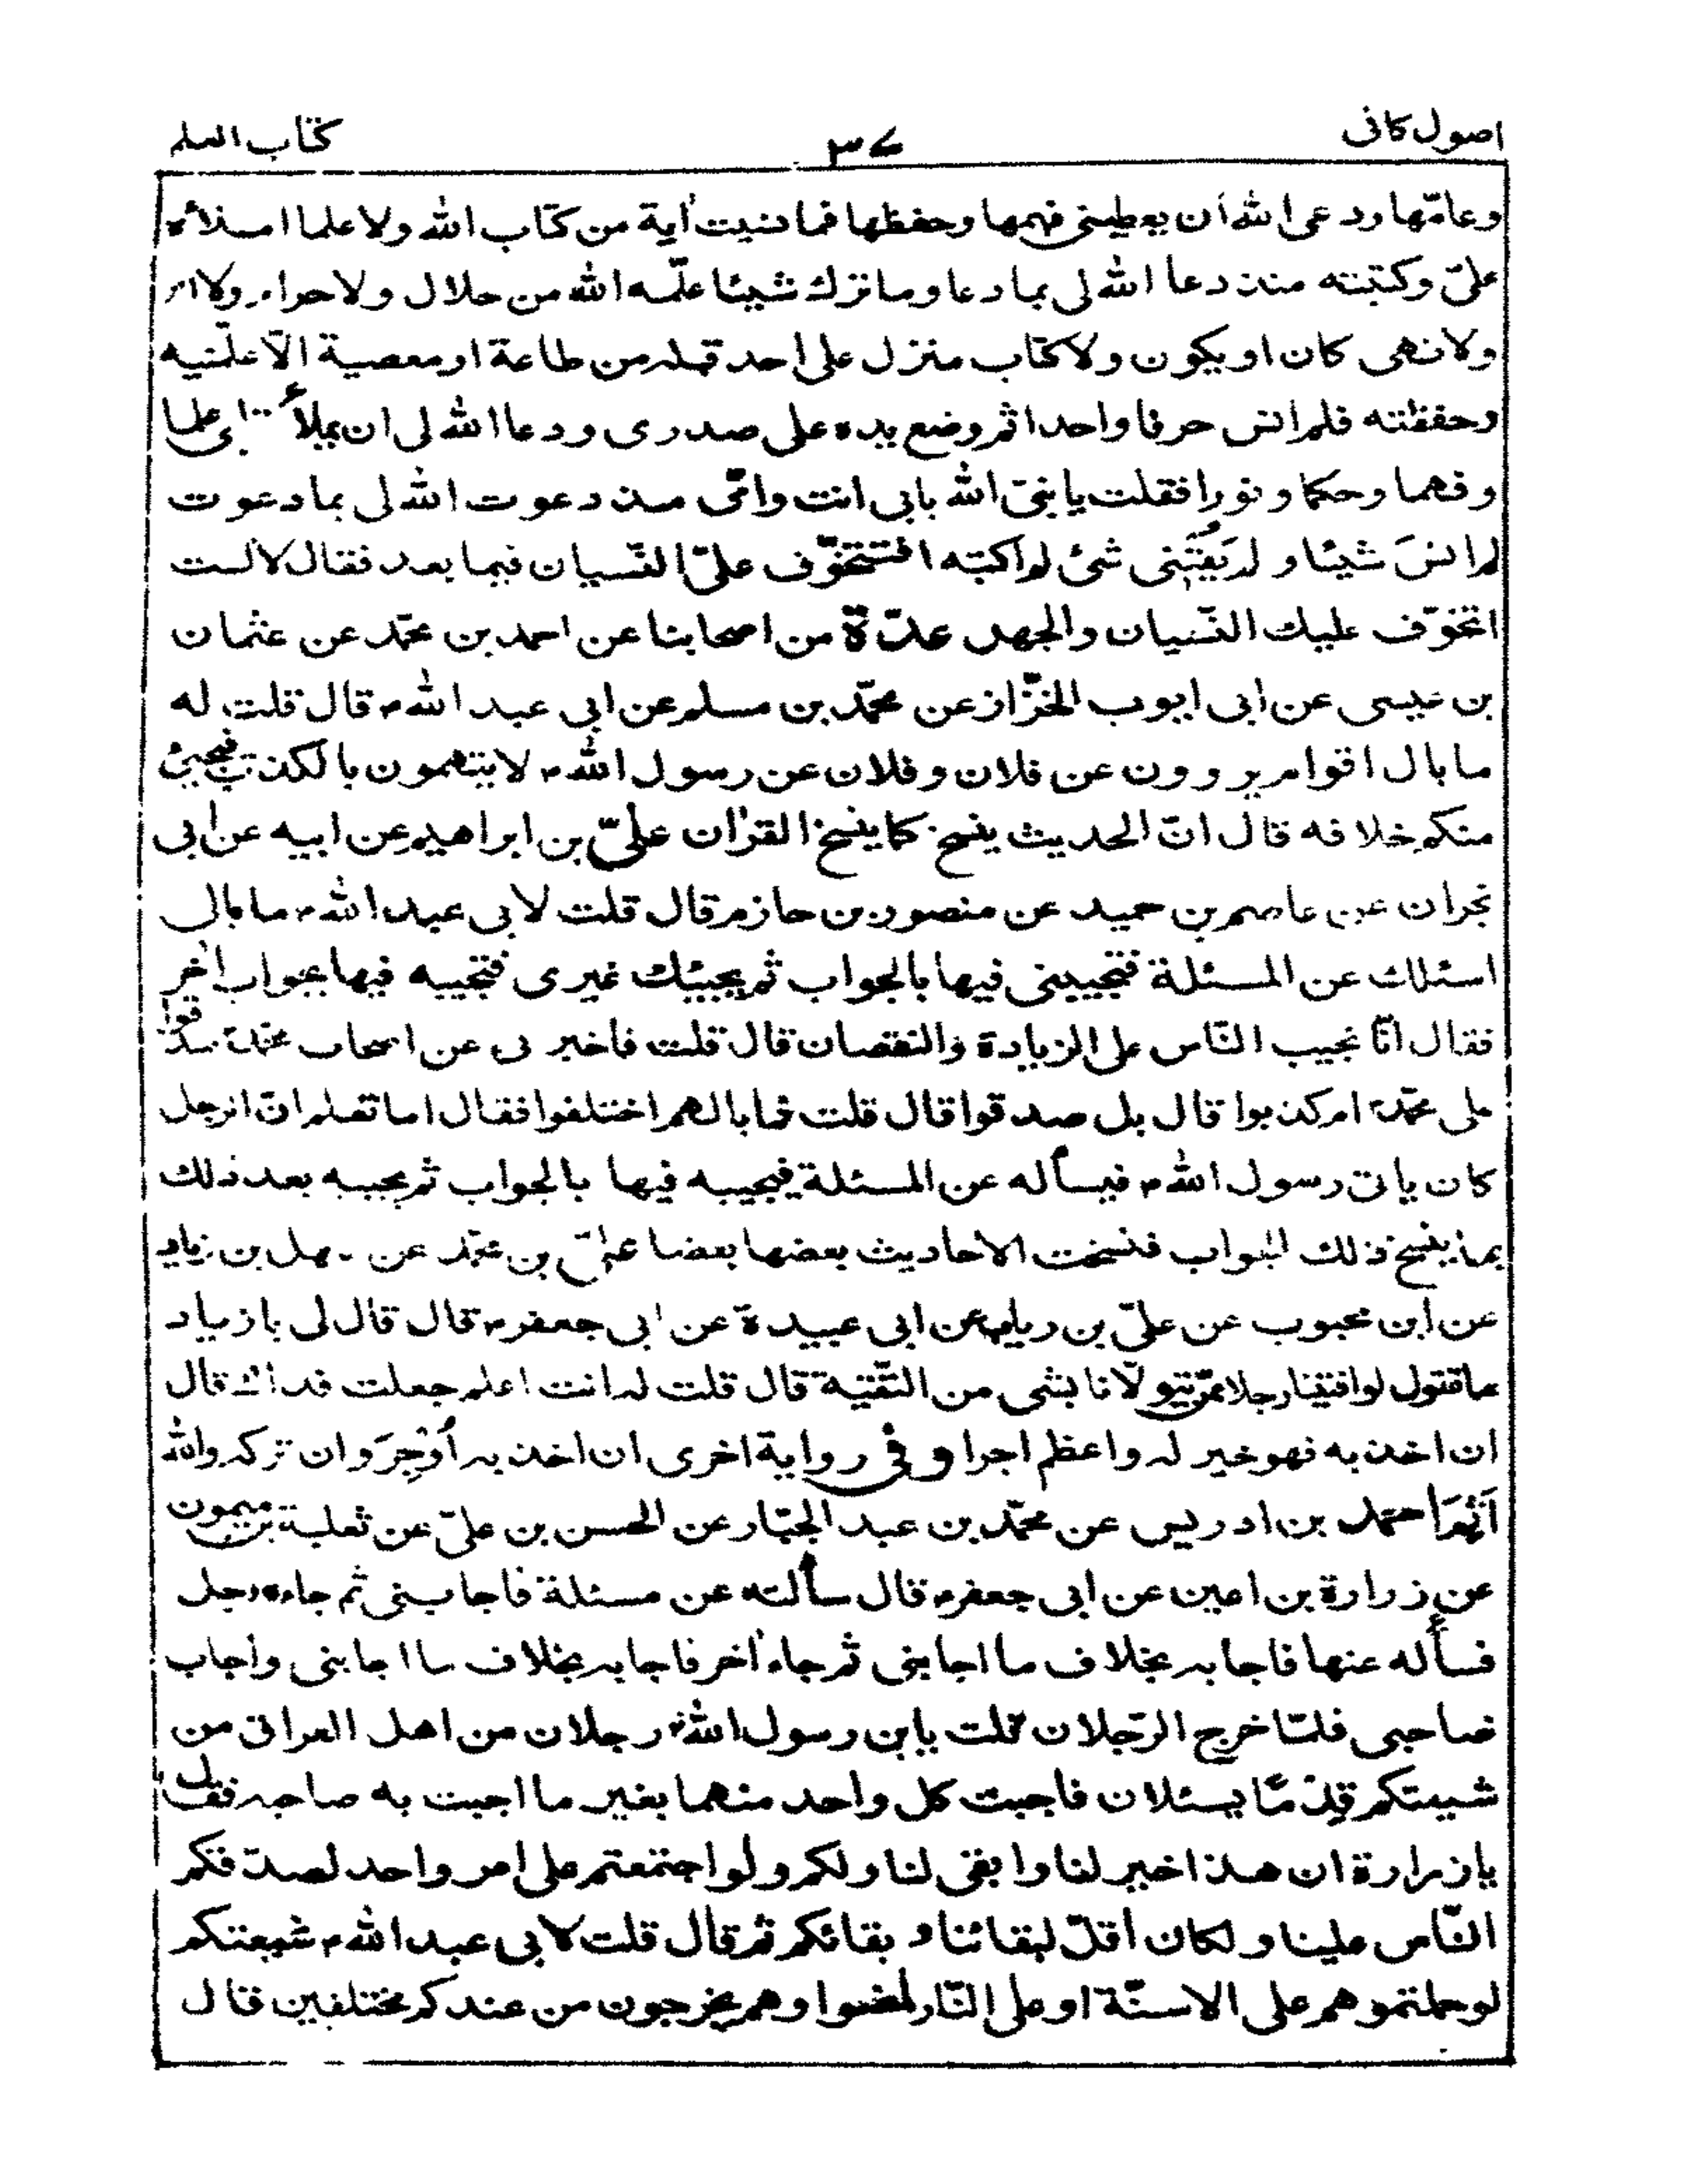 اصول كافى
٣٧
كتاب العلم
وعامّها ودعى الله أن يعطينى فهمها وحفظها فما نسيت اٰية من كتاب الله ولا علما املأه
علىّ وكتبته منذ دعا الله لى بما دعا وما ترك شيئا علّمه الله من حلال ولا حرام ولا امر
ولا نهى كان او يكون ولا كتاب منزل على احد قبله من طاعة او معصية الّا علّمنيه
وحفظته فلم انس حرفا واحدا ثم وضع يده على صدرى ودعا الله لى ان يملأ قلبى علما
وفهما وحكما ونورا فقلت يا نبىّ الله بابى انت وامّى منذ دعوت الله لى بما دعوت
لم انسَ شيئا و لم يَفُتْنِى شئ لم اكتبه افتتخوّف علىّ النّسيان فيما بعد فقال لا لست
اتخوّف عليك النّسيان والجهل عدّة من اصحابنا عن احمد بن محمّد عن عثمان
بن عيسى عن ابى ايوب الخزّاز عن محمّد بن مسلم عن ابى عبد الله ؑ قال قلت له
ما بال اقوام يروون عن فلان وفلان عن رسول الله ؐ لا يتهمون بالكذب فيجيئ
منكم خلافه قال انّ الحديث ينسخ كما ينسخ القراٰن علىّ بن ابراهيم عن ابيه عن ابى
نجران عن عاصم بن حميد عن منصور بن حازم قال قلت لابى عبد الله ؑ ما بالى
اسئلك عن المسئلة فتجيبنى فيها بالجواب ثم يجيئك غيرى فتجيبه فيها بجواب اٰخر
فقال انّا نجيب النّاس على الزيادة والنقصان قال قلت فاخبرنى عن اصحاب محمّد ؐ صدقوا
على محمّد ؐ ام كذبوا قال بل صدقوا قال قلت فما بالهم اختلفوا فقال اما تعلم انّ الرجل
كان ياتى رسول الله ؐ فيسأله عن المسئلة فيجيبه فيها بالجواب ثم يجيبه بعد ذلك
بما ينسخ ذلك الجواب فنسخت الاحاديث بعضها بعضا علىّ بن محمّد عن سهل بن زياد
عن ابن محبوب عن علىّ بن رياب عن ابى عبيدة عن ابى جعفر ؑ قال قال لى يا زياد
ما تقول لو افتينا رجلا ممّن يتولّانا بشى من التّقيّة قال قلت له انت اعلم جعلت فداك قال
ان اخذ به فهو خير له واعظم اجرا وفى رواية اخرى ان اخذ به اُوْجِرَ وان تركه والله
اَثِمَ احمد بن ادريس عن محمّد بن عبد الجبّار عن الحسن بن علىّ عن ثعلبة بن ميمون
عن زرارة بن اعين عن ابى جعفر ؑ قال سألته عن مسئلة فاجابنى ثم جاءه رجل
فسأله عنها فاجابه بخلاف ما اجابنى ثم جاء اٰخر فاجابه بخلاف ما اجابنى واجاب
صاحبى فلمّا خرج الرّجلان قلت يا بن رسول الله ؐ رجلان من اهل العراق من
شيعتكم قدّما يسئلان فاجبت كل واحد منهما بغير ما اجبت به صاحبه فقال
يا زرارة ان هذا خير لنا وابقى لنا ولكم ولو اجتمعتم على امر واحد لصدّقكم
النّاس علينا ولكان أقلّ لبقائنا وبقائكم ثم قال قلت لابى عبد الله ؑ شيعتكم
لو حملتموهم على الاسنّة او على النّار لمضوا وهم يخرجون من عندكم مختلفين قال